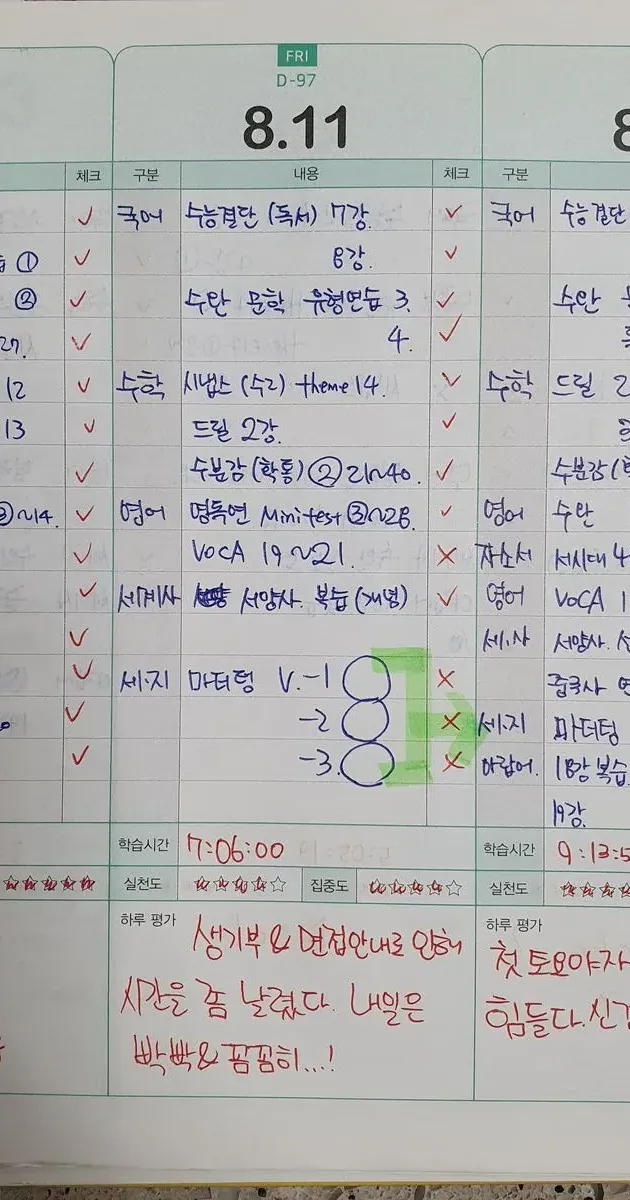 FRI
D-97
8.11
체크 구분 내용 체크 구분
국어 수능결단 (독서) 7강.
8강.
수탄 문학 유형연습 3.
4.
수학 시냅스 (수2) theme 14.
드릴 2강.
수분감 (확통) ② 21~40.
영어 영독연 Minitest ③~28.
VOCA 19~21.
세계사 서양사. 복습 (개념)
세.지 마더텅 V. -1
-2
-3.
학습시간 7:06:00
실천도 집중도
하루 평가
생기부 & 면접안내로 인해
시간을 좀 날렸다. 내일은
빡빡 & 꼼꼼히...!
①
②
27.
12
13
~14.
8
국어 수능결단
수탄
수학 드릴 2
수분감
영어 수탄
자소서 서시대 4
영어 VOCA 1
세.사 서양사.
중국사 연
세.지 마더텅
아랍어. 18강 복습
19강.
학습시간 9:13:5
실천도
하루 평가
첫 토요야자
힘들다.